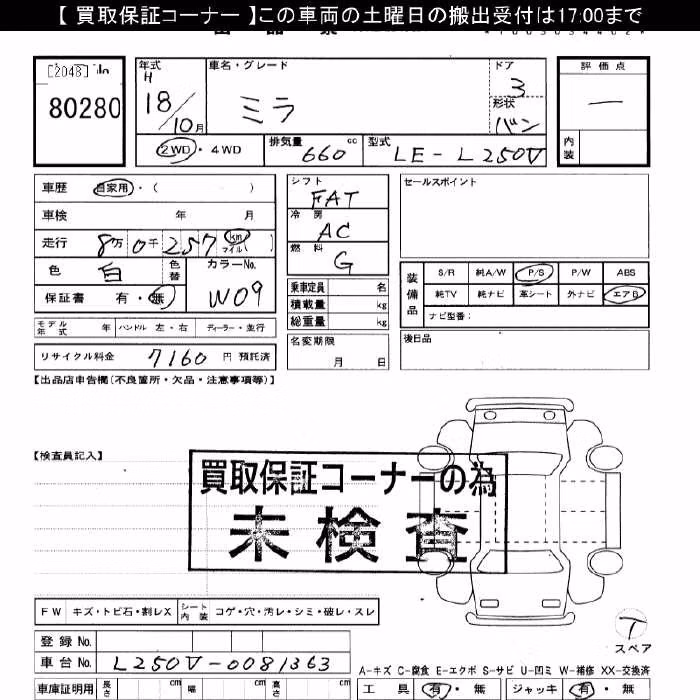 【 買取保証コーナー 】この車両の土曜日の搬出受付は17:00まで
[2048] No
80280
年式 H 18/10月
車名・グレード ミラ
ドア 3
形状 バン
評価点 —
内装
2WD・4WD
排気量 660cc
型式 LE-L250V
車歴 自家用・( )
車検 年 月
走行 8万0千257 km マイル( )
色 白 色替
カラーNo. W09
保証書 有・無
モデル年式 年 ハンドル 左・右 ディーラー・並行
リサイクル料金 7160 円 預託済
シフト FAT
冷房 AC
燃料 G
乗車定員 名
積載量 kg
総重量 kg
名変期限 月 日
セールスポイント
装備品
S/R 純A/W P/S P/W ABS
純TV 純ナビ 革シート 外ナビ エアB
ナビ型番:
後日品
【出品店申告欄(不良箇所・欠品・注意事項等)】
【検査員記入】
買取保証コーナーの為
未検査
FW キズ・トビ石・割レX シート内装 コゲ・穴・汚レ・シミ・破レ・スレ
登録No.
車台No. L250V-0081363
車庫証明用 長さ cm 幅 cm 高さ cm
T
スペア
A-キズ C-腐食 E-エクボ S-サビ U-凹ミ W-補修 XX-交換済
工具 有・無 ジャッキ 有・無